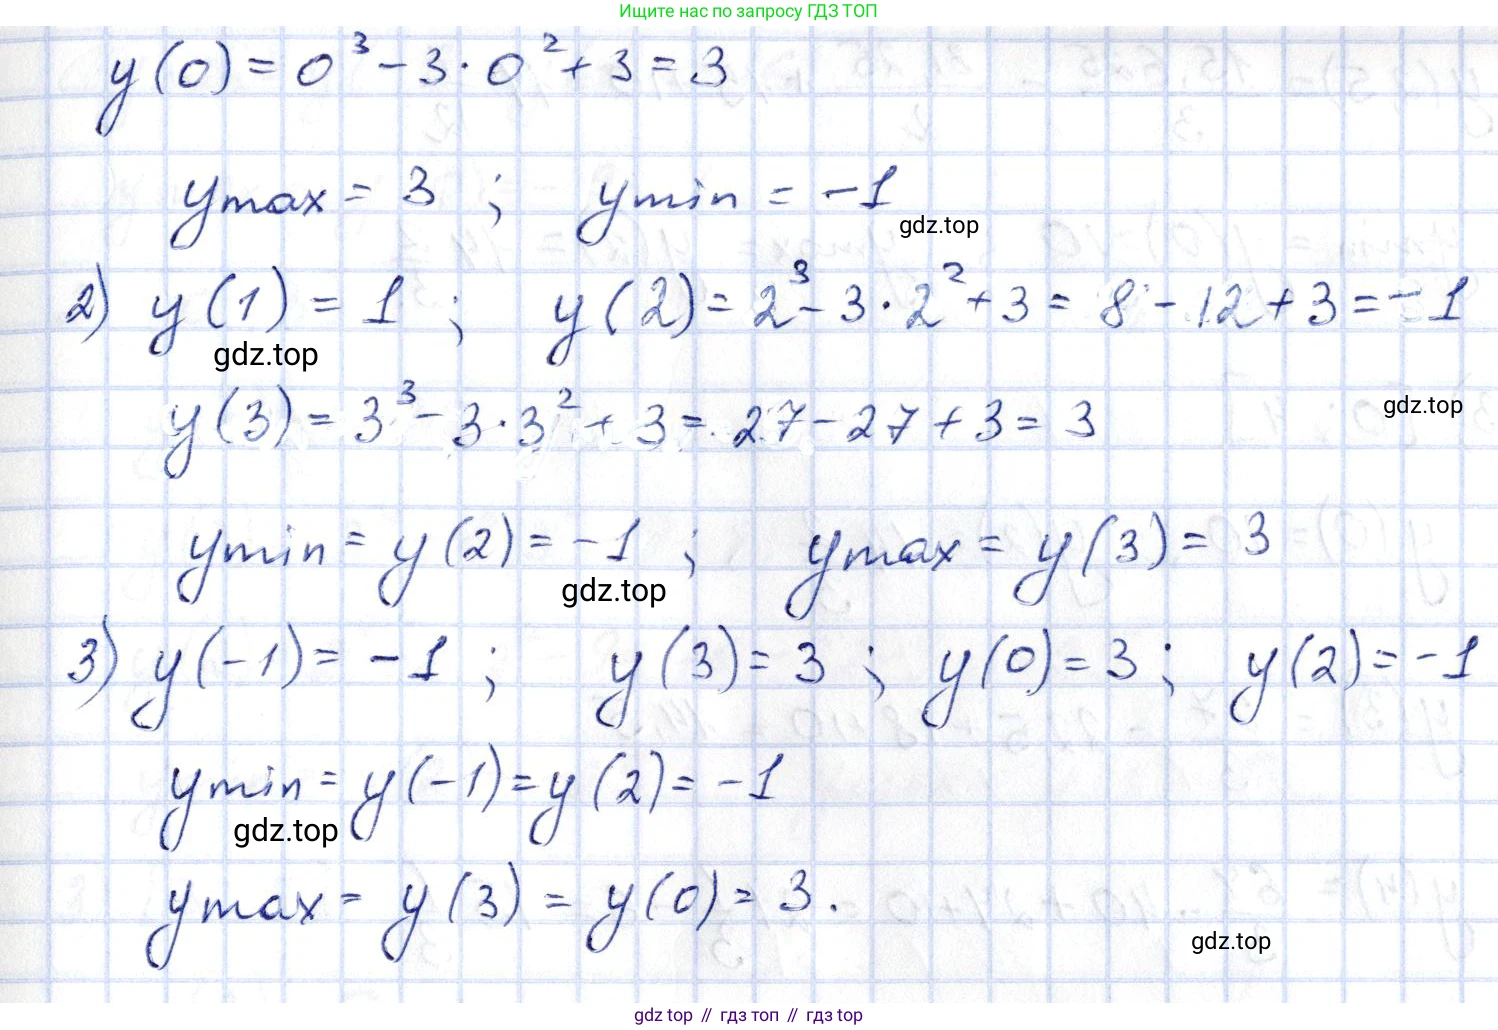 Ищите нас по запросу ГДЗ ТОП
y(0) = 0³ - 3 · 0² + 3 = 3
ymax = 3 ; ymin = -1
gdz.top
2) y(1) = 1 ; y(2) = 2³ - 3 · 2² + 3 = 8 - 12 + 3 = -1
gdz.top
y(3) = 3³ - 3 · 3² + 3 = 27 - 27 + 3 = 3
gdz.top
ymin = y(2) = -1 ; ymax = y(3) = 3
gdz.top
3) y(-1) = -1 ; y(3) = 3 ; y(0) = 3 ; y(2) = -1
ymin = y(-1) = y(2) = -1
gdz.top
ymax = y(3) = y(0) = 3.
gdz.top
gdz top // гдз топ // гдз top